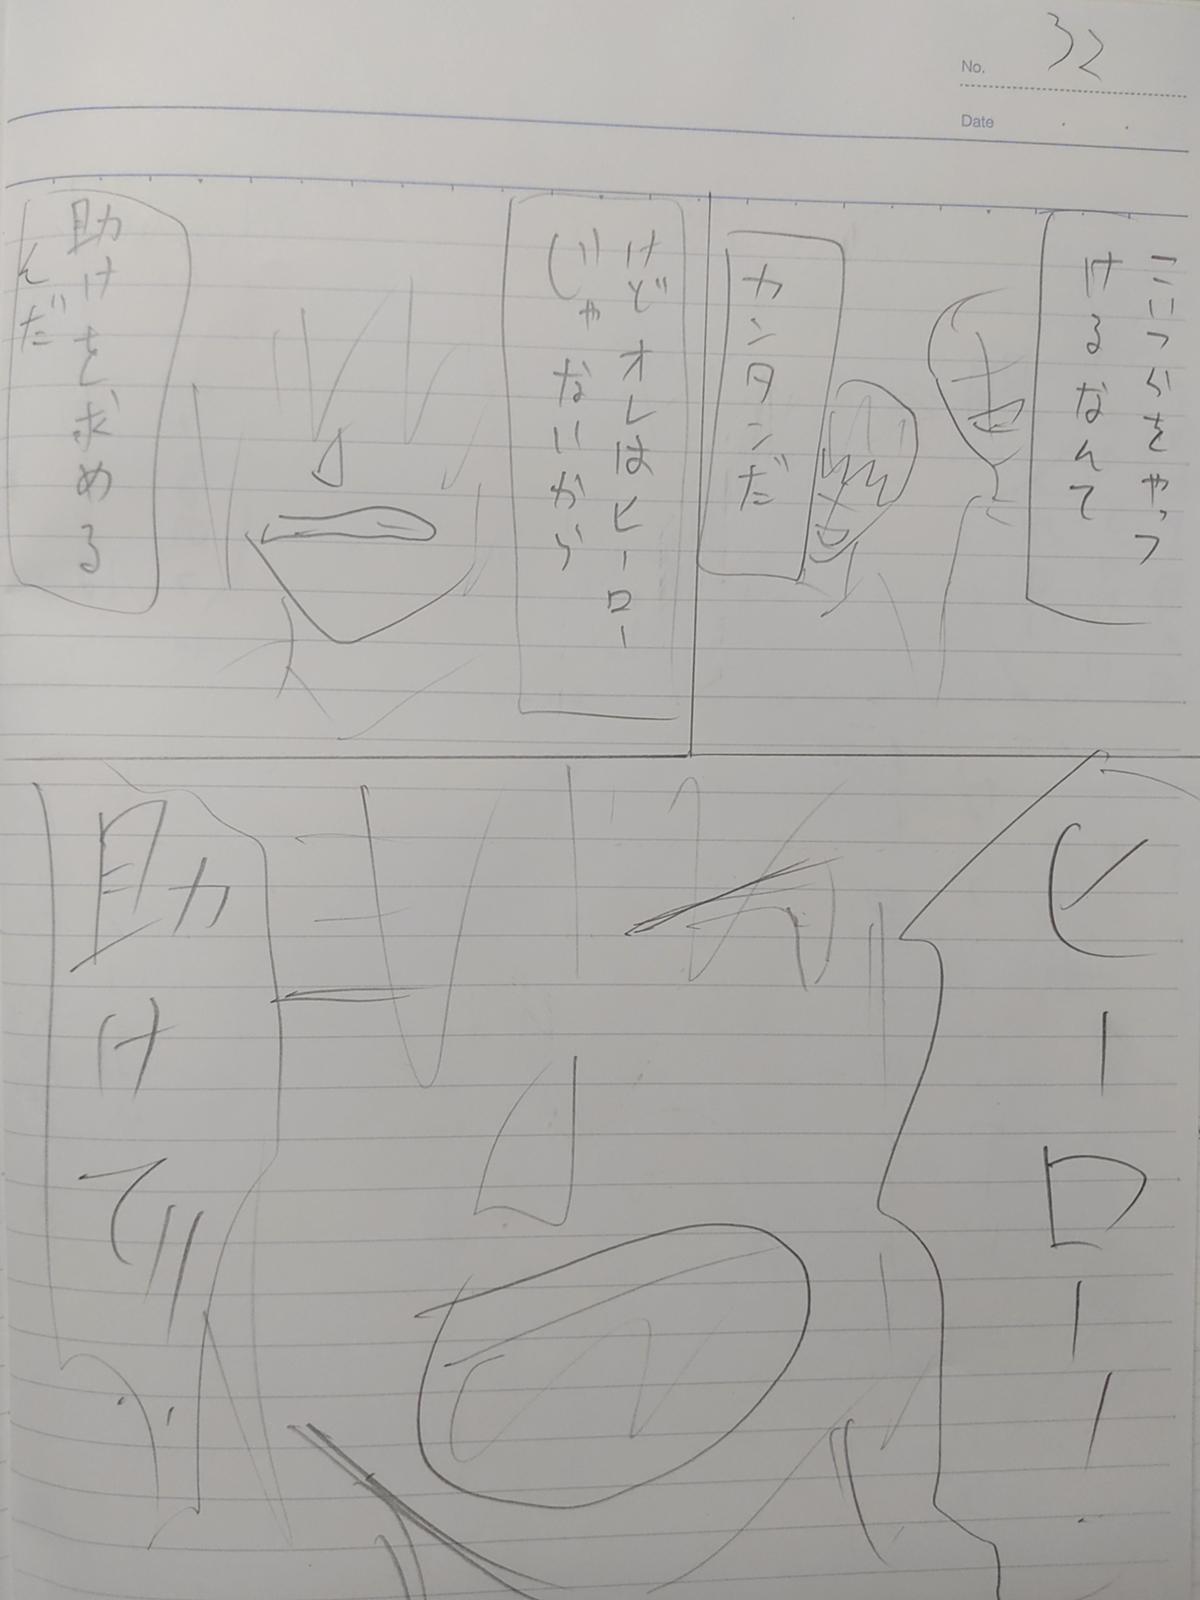 No. 32
Date
こいつらをやっつ
けるなんて
カンタンだ
けどオレはヒーロー
じゃないから
助けを求める
んだ
ヒーロー!
助けて!!